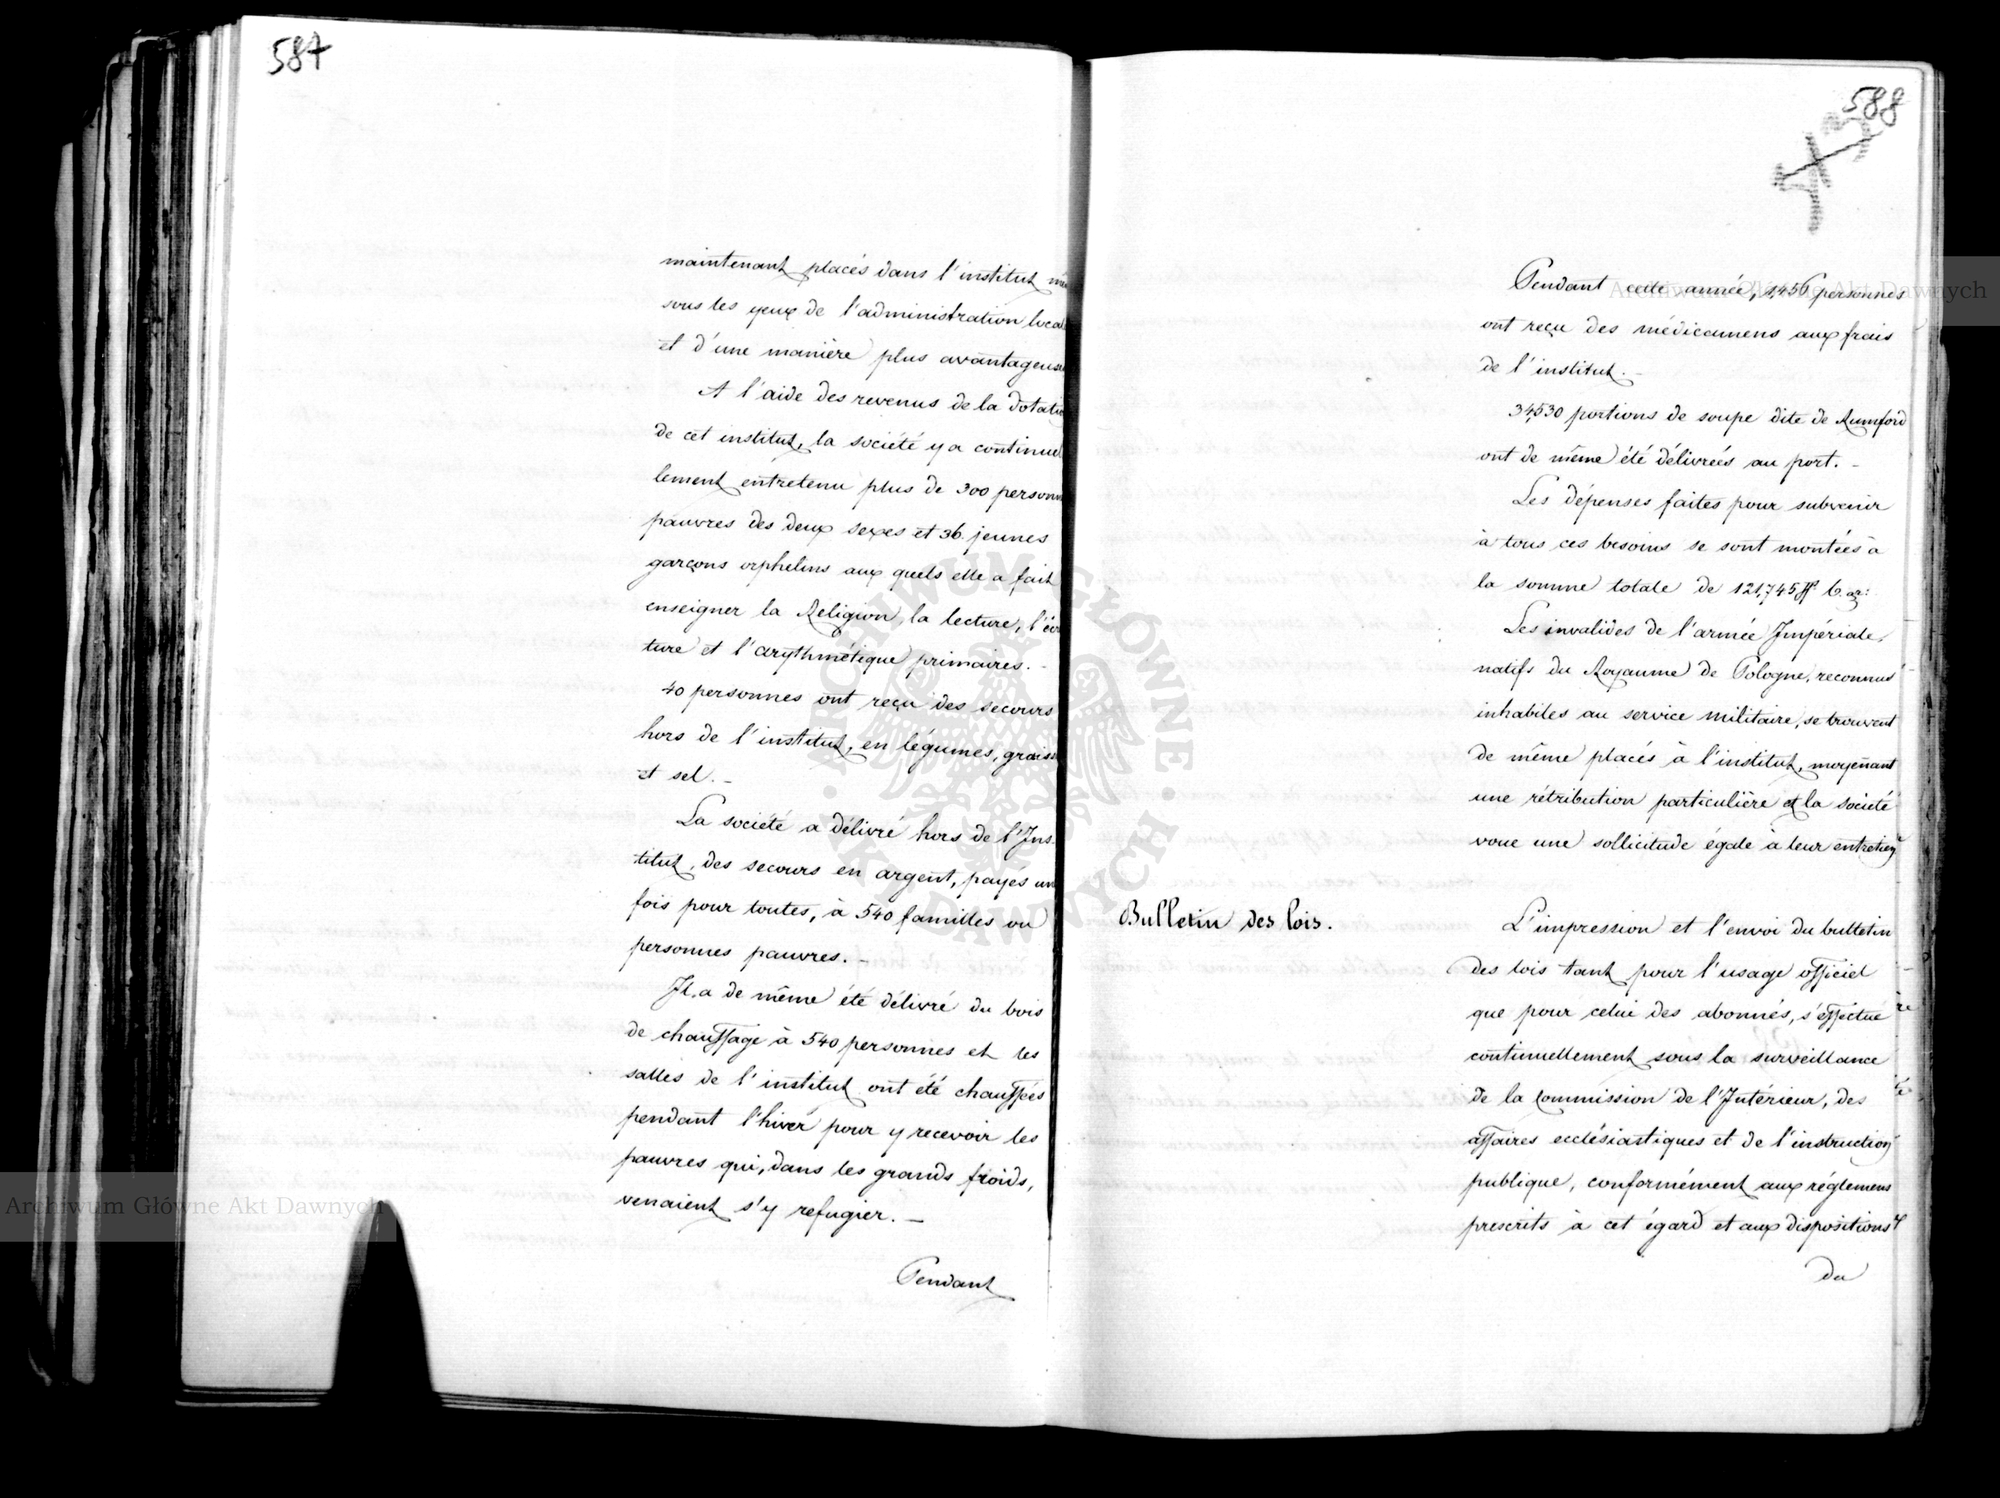 587
maintenant placés dans l'institut
sous les yeux de l'administration local
et d'une manière plus avantageuse
A l'aide des revenus de la dotatio
de cet institut, la société y a continuel
lement entretenu plus de 300 personn
pauvres des deux sexes et 36 jeunes
garçons orphelins aux quels elle a fait
enseigner la Religion, la lecture, l'écri
ture et l'arythmétique primaires. -
40 personnes ont reçu des secours
hors de l'institut, en légumes, graiss
et sel. -
La société a délivré hors de l'Ins-
titut, des secours en argent, payés un
fois pour toutes, à 540 familles ou
personnes pauvres. -
Il a de même été délivré du bois
de chauffage à 540 personnes et les
salles de l'institut ont été chauffées
pendant l'hiver pour y recevoir les
pauvres qui, dans les grands froids,
venaient s'y refugier. -
Pendant
588
Pendant cette année, 1,456 personnes
ont reçu des médicamens aux frais
de l'institut. -
34,530 portions de soupe dite de Rumford
ont de même été délivrées au port. -
Les dépenses faites pour subvenir
à tous ces besoins se sont montées à
la somme totale de 121,745 ff 6. gr:
Les invalides de l'armée Impériale,
natifs du Royaume de Pologne, reconnus
inhabiles au service militaire, se trouvent
de même placés à l'institut, moyennant
une rétribution particulière et la société
voue une sollicitude égale à leur entretien
Bulletin des lois.
L'impression et l'envoi du bulletin
des lois tant pour l'usage officiel
que pour celui des abonnés, s'effectue
continuellement sous la surveillance
de la Commission de l'Intérieur, des
affaires ecclésiastiques et de l'instruction
publique, conformément aux réglemens
prescrits à cet égard et aux dispositions
du
Archiwum Główne Akt Dawnych
Archiwum Główne Akt Dawnych
ARCHIWUM GŁÓWNE
AKT DAWNYCH